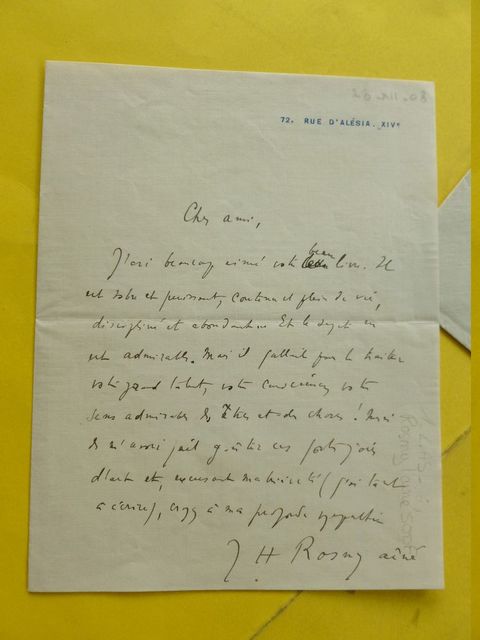 28-XII-08
72. RUE D'ALÉSIA. XIVe
Cher ami,
J'ai beaucoup aimé votre beau livre. Il
est sobre et puissant, contenu et plein de vie,
discipliné et abondant. Et le sujet en
est admirable. Mais il fallait pour le traiter
votre grand talent, votre conscience, votre
sens admirable des êtres et des choses! Merci
de m'avoir fait goûter ces fortes joies
d'art et, excusant ma brièveté (j'ai tant
à écrire), croyez à ma profonde sympathie
J H Rosny aîné